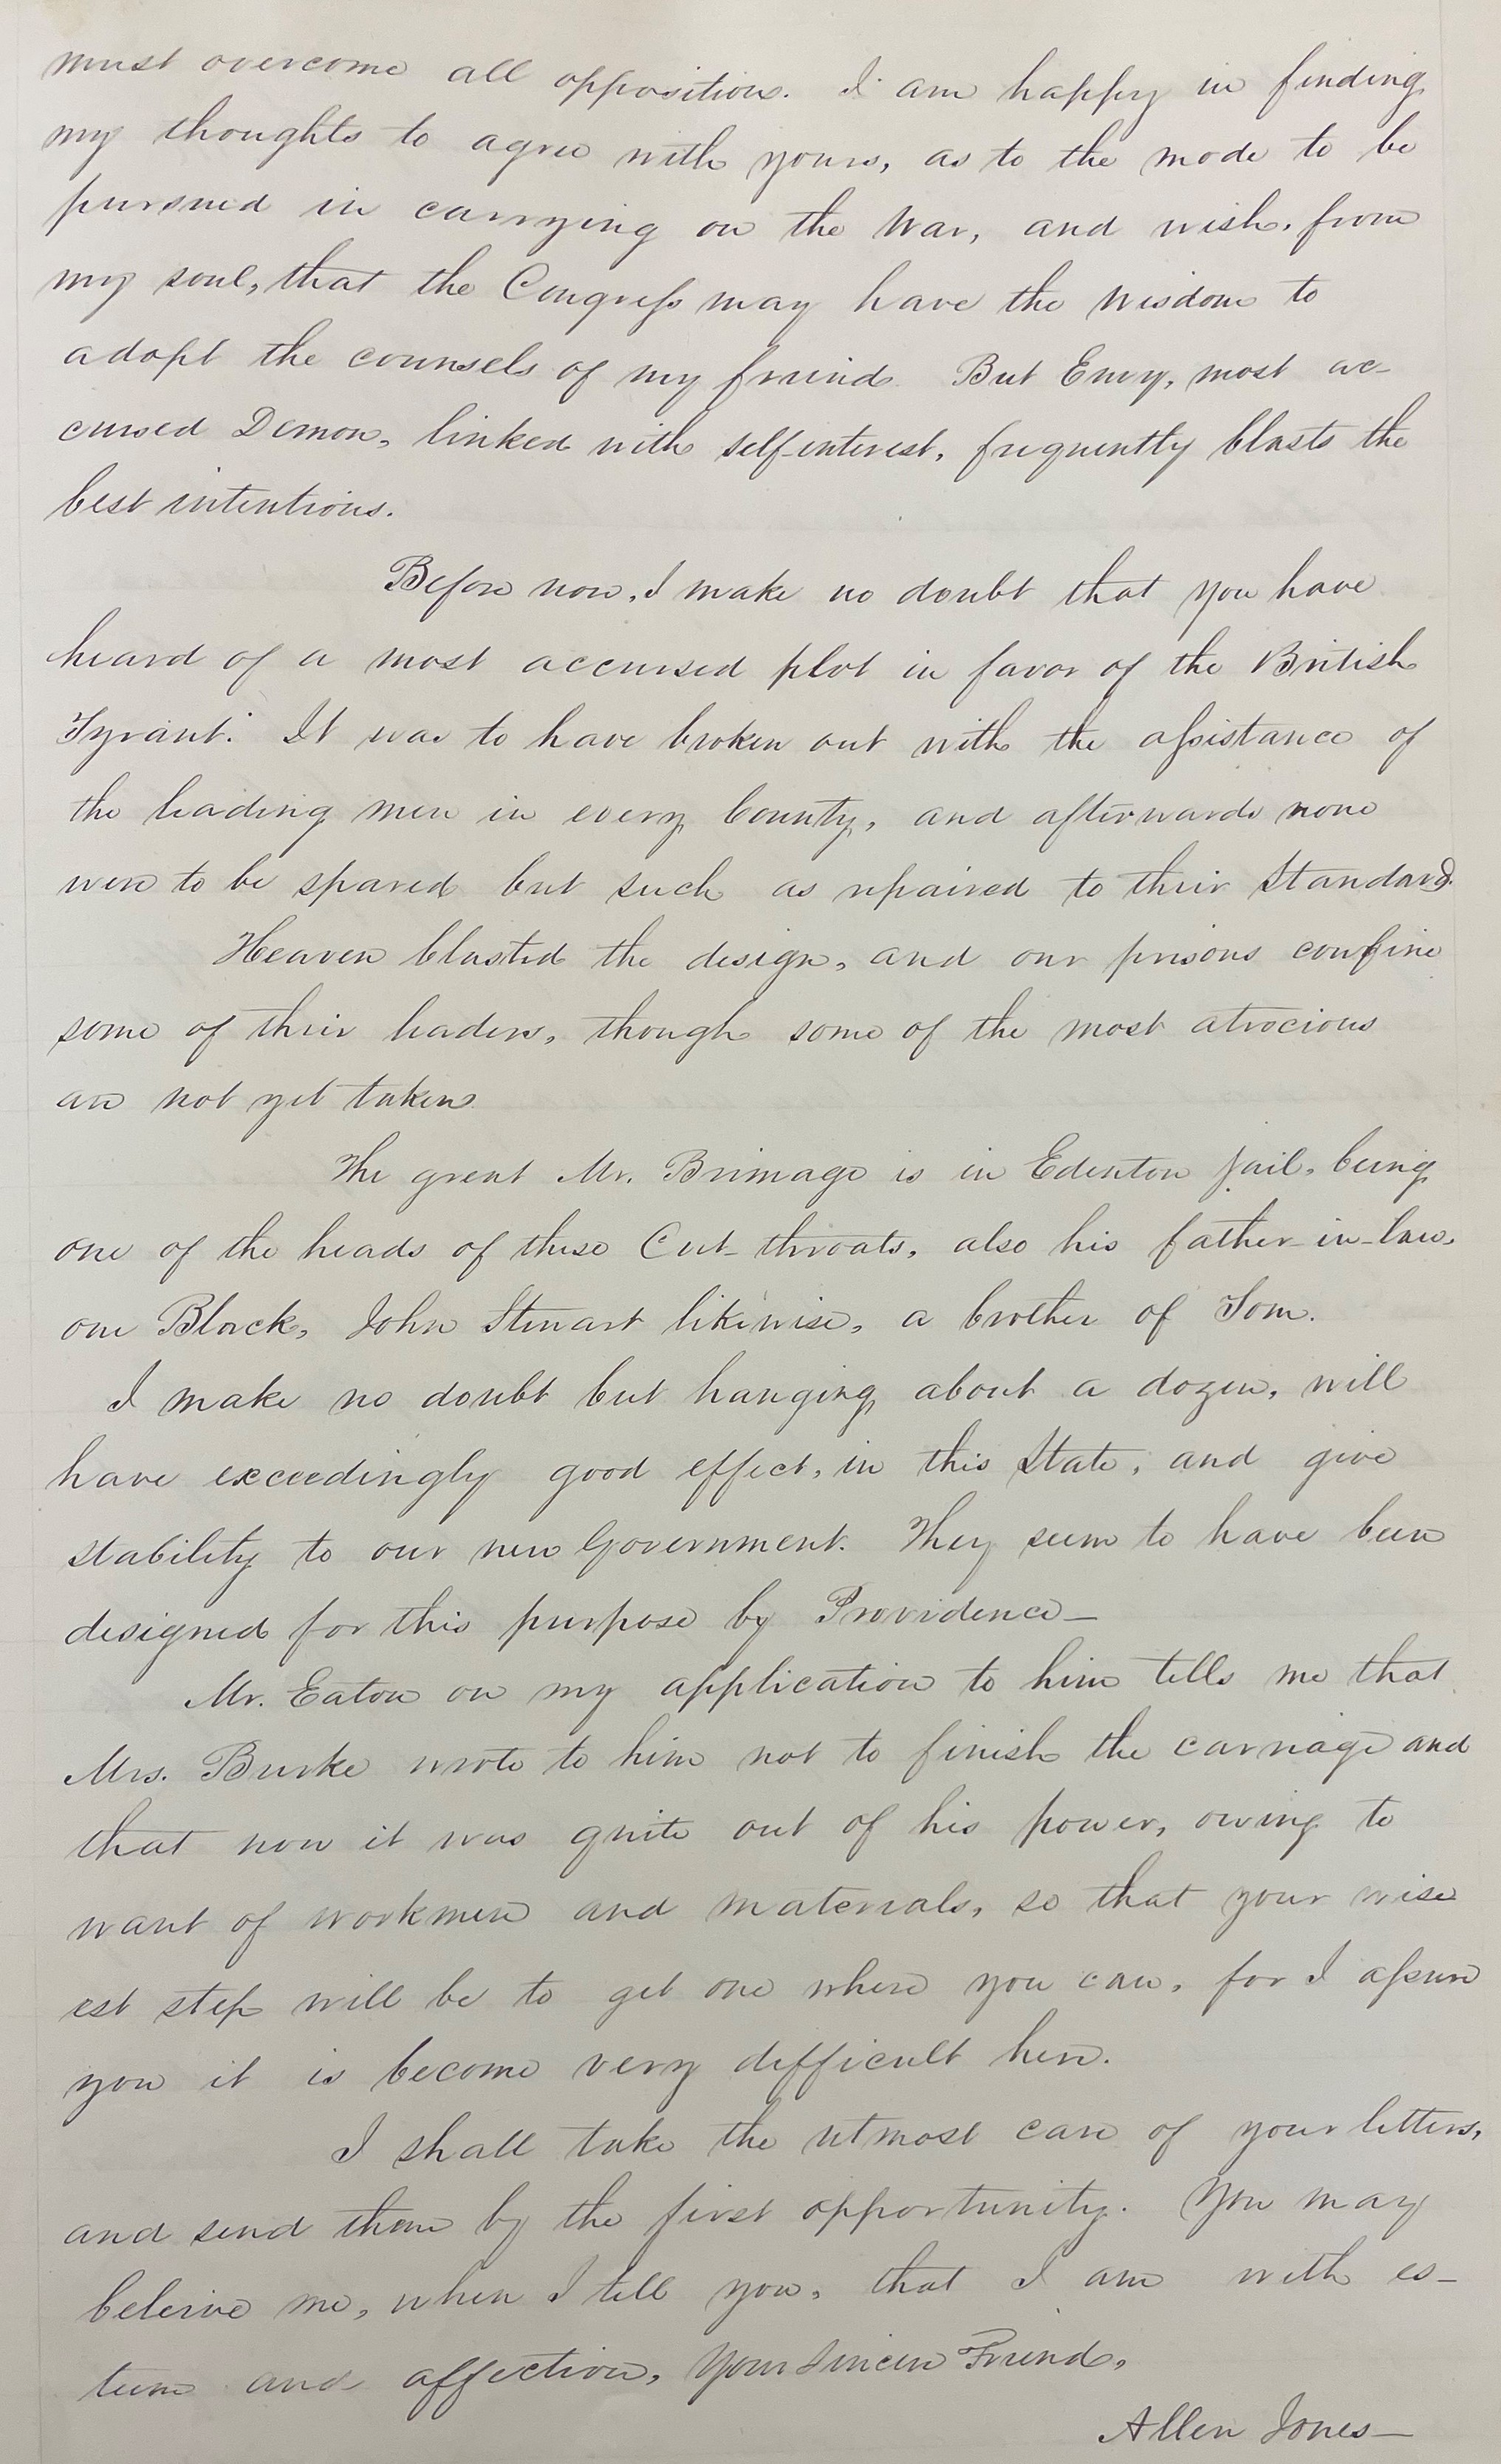 must overcome all opposition. I am happy in finding
my thoughts to agree with yours, as to the mode to be
pursued in carrying on the War, and wish, from
my soul, that the Congress may have the wisdom to
adopt the counsels of my friend. But Envy, most ac-
cursed Demon, linked with self-interest, frequently blasts the
best intentions.
Before now, I make no doubt that you have
heard of a most accursed plot in favor of the British
Tyrant. It was to have broken out with the assistance of
the leading men in every County, and afterwards none
were to be spared but such as repaired to their Standard.
Heaven blasted the design, and our prisons confine
some of their leaders, though some of the most atrocious
are not yet taken.
The great Mr. Brimage is in Edenton jail, being
one of the heads of these Cut-throats, also his father-in-law,
one Black, John Stewart likewise, a brother of Tom.
I make no doubt but hanging about a dozen, will
have exceedingly good effect, in this State, and give
stability to our new Government. They seem to have been
designed for this purpose by Providence—
Mr. Eaton on my application to him tells me that
Mrs. Burke wrote to him not to finish the carriage and
that now it was quite out of his power, owing to
want of workmen and materials, so that your wise
est step will be to get one where you can, for I assure
you it is become very difficult here.
I shall take the utmost care of your letters,
and send them by the first opportunity. You may
beleive me, when I tell you, that I am with es-
teem and affection, Your Sincere Friend,
Allen Jones—